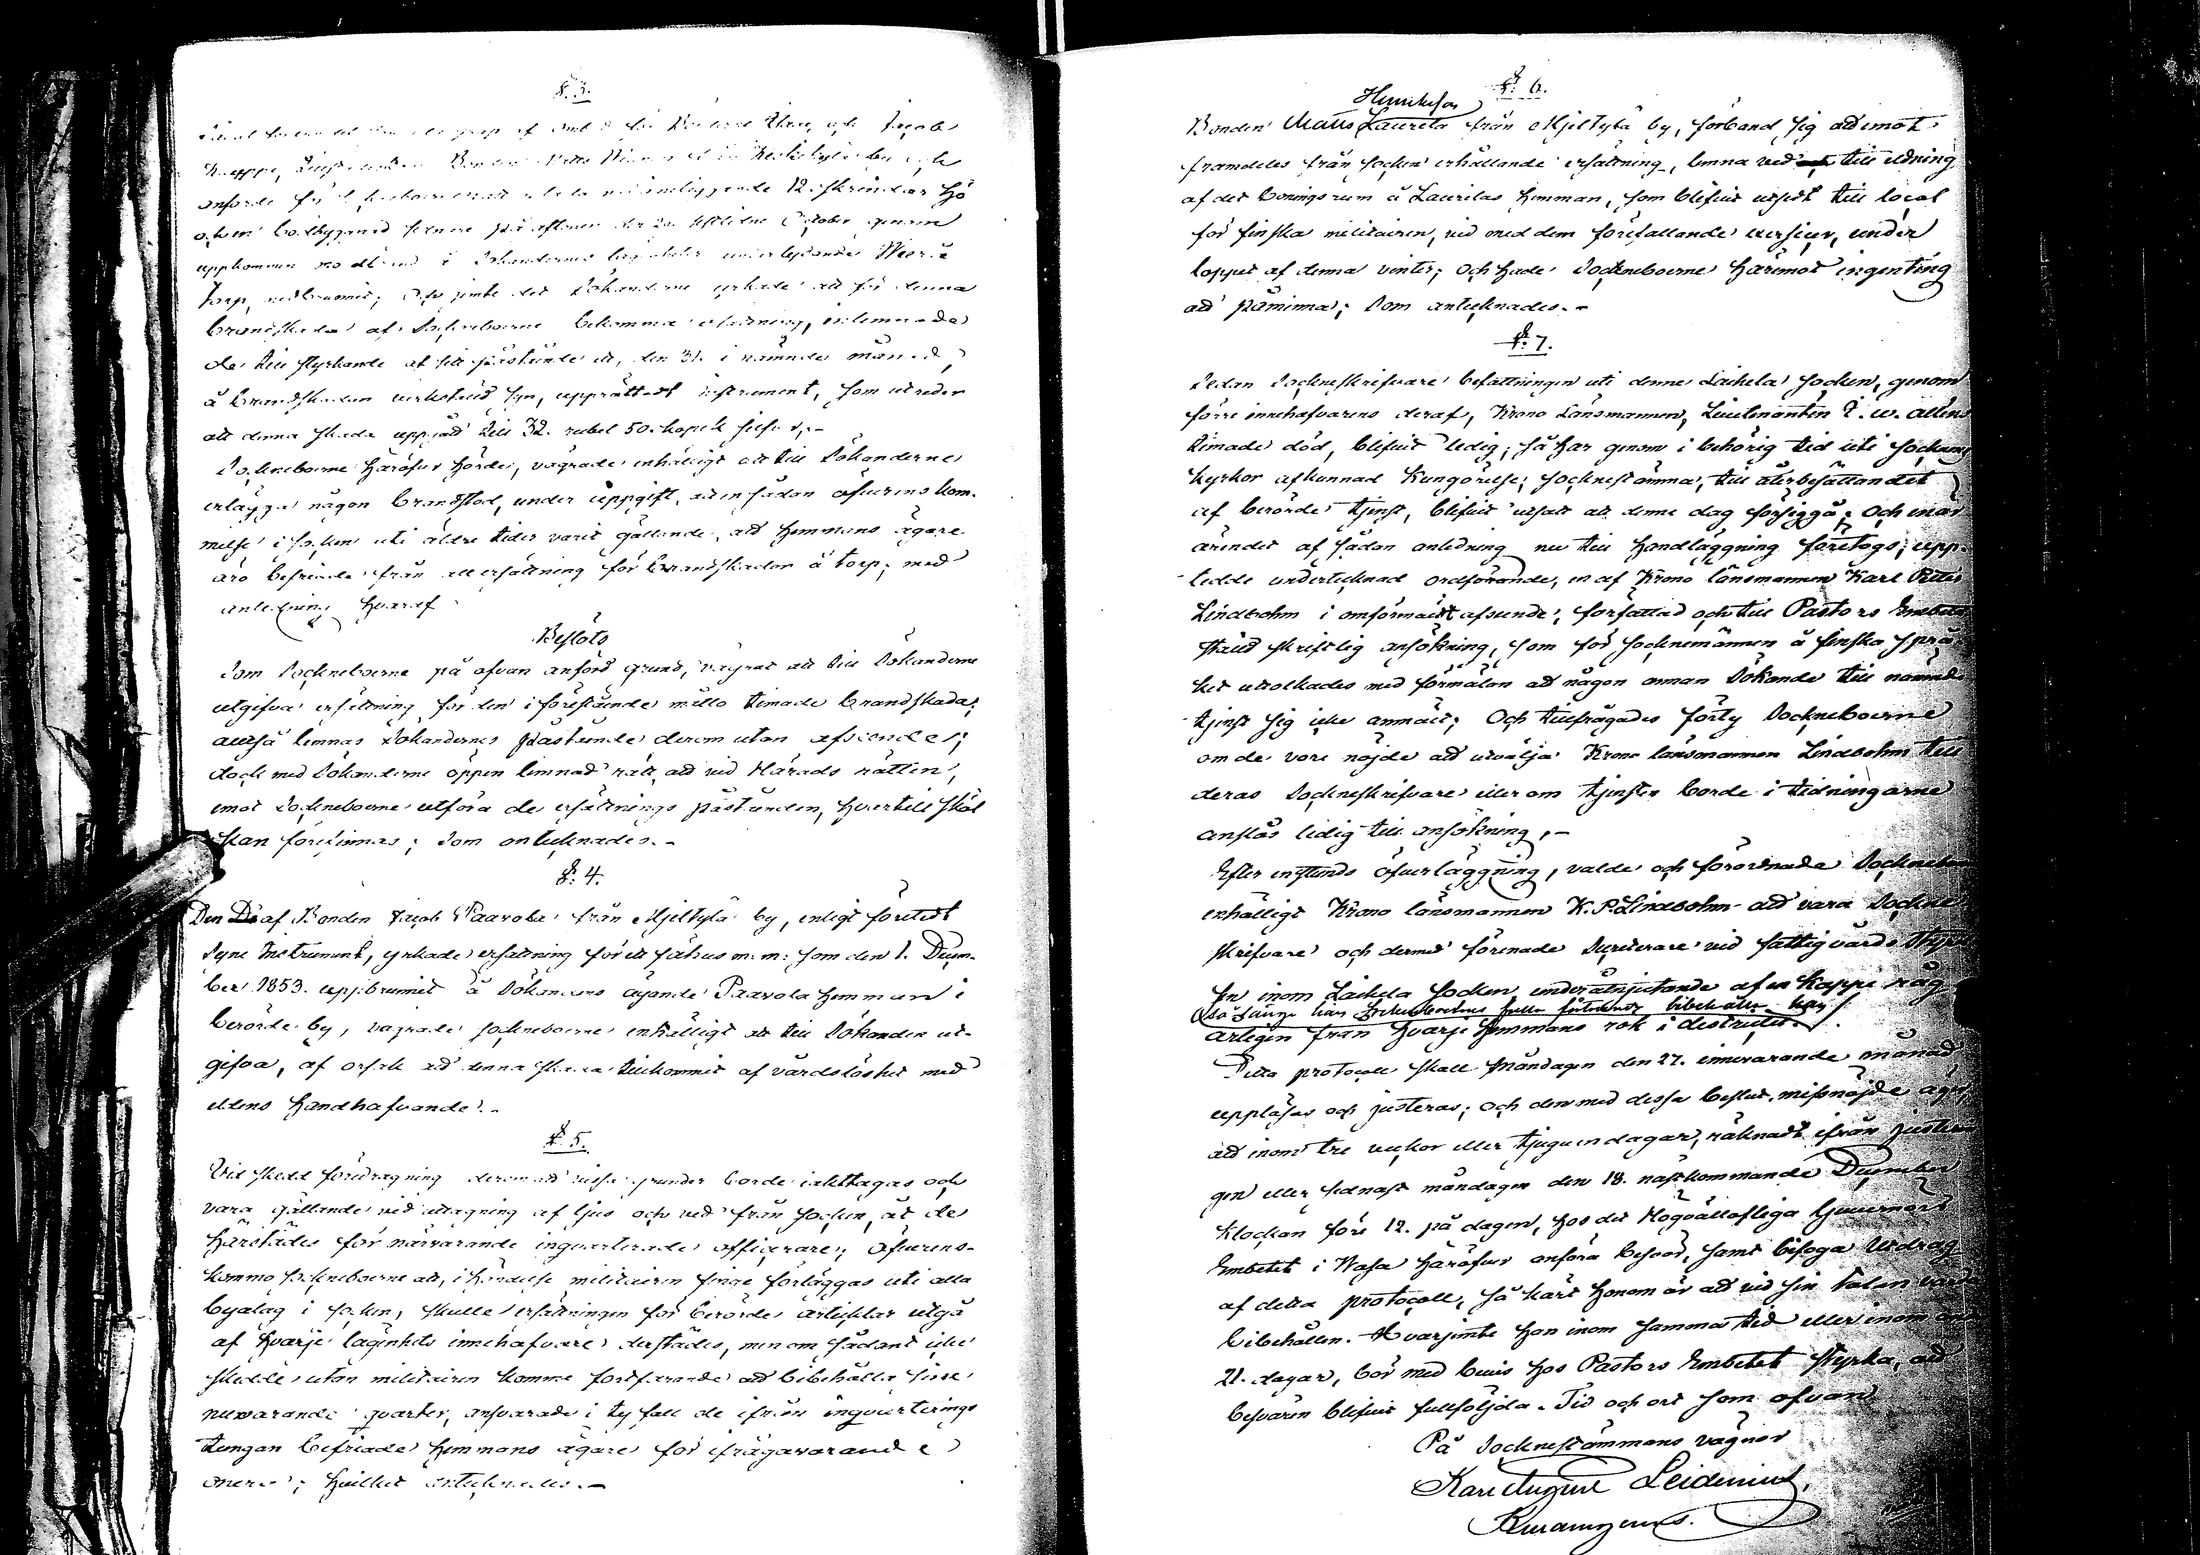 §. 3.
Jacob
Kauppi, Bonden Matts by och
anförde 12. skrindar hö
och en bodbyggnad aftonen den 20. sistlidne October genom
uppkommen vådeld i Sökandernes lägenheter underlydande
torp, nedbrunnit; Och jemte det Sökanderne yrkade att för denna
brandskada af Sockneboerne bekomma ersättning, inlemnade
de till styrkande af sitt påstående ett, den 31. i nämnde månad,
å brandskadan verkstäld syn, upprättadt instrument, som utreder
att denna skada uppgått till 32. rubel 50. kopek silfver,.-
Sockneboerne häröfver hörde, vägrade enhälligt att till Sökanderne
erlägga någon brandstod, under uppgift, att en sådan öfverenskom-
melse i socken uti äldre tider varit gällande, att hemmans ägare
äro befriade från all ersättning för brandskador å torp; med
anledning hvaraf
Beslöts
Som Sockneboerne på ofvan anförd grund, vägrat att till Sökanderne
utgifva ersättning för den i förestående måtto timade brandskada;
altså lemnas Sökandernes påstående derom utan afseende;
dock med Sökanderne öppen lemnad rätt, att vid Härads rätten,
emot Sockneboerne utföra de ersättnings påståenden, hvartill skäl
kan förefinnas; Som antecknades.-
§. 4.
Den af Bonden Jacob Paavola från Mjeltylä by, enligt företedt
Syne Instrument, yrkade ersättning för ett fähus m: m: som den 1. Decem-
ber 1853. uppbrunnit å Sökandens ägande Paavola hemman i
berörde by, vägrade socknboerne enhälligt att till Sökanden ut-
gifva, af orsak att denna skada tillkommit af vårdslöshet med
eldens handhafvande.-
§. 5.
Vid skedd föredragning derom att vissa grunder borde iakttagas och
vara gällande vid uttagning af ljus och ved från socken, åt de
härstädes för närvarande inqvarterade officerare; öfverens-
kommo socknboerne att, i händelse militairen finge förläggas uti alla
byalag i socken, skulle ersättningen för berörde artiklar utgå
af hvarje lägenhets innehafvare derstädes, men om sådant icke
skedde utan militairen komme fortfarande att bibehålla sine
nuvarande qvarter, ansvarade i ty fall de ifrån inqvarterings
tungan befriade hemmans ägare för ifrågavarande
onera; hvilket antecknades.-
§. 6.
Henriksson
Bonden Matts Laurila från Mjeltylä by, förband sig att emot
framdeles från socken erhållande ersättning, lemna ved till eldning
af det boningsrum å Laurilas hemman, som blifvit utsedt till local
för finska militairen, vid med dem förefallande exersicer, under
loppet af denna vinter; Och hade Socknboerne häremot ingenting
att påminna; Som antecknades.-
§. 7.
Sedan Sockneskrifvare befattningen uti denne Laihela socken, genom
förre innehafvarens deraf, Krono Länsmannen, Lieutenanten
timade död, blifvit ledig; så har genom i behörig tid uti sockens
kyrkor afkunnad Kungörelse; socknestämma, till återbesättandet
af berörde tjenst, blifvit utsatt att denne dag försiggå; Och när
ärendet af sådan anledning nu till handläggning företogs, upp-
tedde undertecknad ordförande, en af Krono länsmannen Karl Petter
Lindbohm i omförmält afseende, författad och till Pastors Embetet
stäld skriftlig ansökning, som för socknemännen å finska språ-
ket uttolkades med förmälan att någon annan Sökande till nämnde
tjenst sig icke anmält; Och tillfrågades förty Socknboerne
om de vore nöjde att utvälja Krono länsmannen Lindbohm till
deras Sockneskrifvare eller om tjensten borde i tidningarne
anslås ledig till ansökning,.-
Efter enstunds öfverläggning, valde och förordnade Socknboerne
enhälligt Krono länsmannen K. P. Lindbohm att vara Sockne
skrifvare och dermed förenade vid fattigvårds
inom Laihela socken, under åtnjutande af en kappe råg
så länge han Socknboernes fulla förtroende bibehåller
årligen från hvarje hemmans rök i districtet.-
Detta protocoll skall Måndagen den 27. innevarande månad
uppläsas och justeras; och den med dessa beslut missnöjde äger,
att inom tre veckor eller tjuguen dagar, räknadt ifrån justerin-
gen eller sednast måndagen den 18. nästkommande December
klockan före 12. på dagen, hos det Högvällofliga Guvernörs
Embetet i Wasa häröfver anföra besvär, samt bifoga Utdrag
af detta protocoll, så kärt honom är att vid sin talan varda
bibehållen. Hvarjemte han inom samma tid eller inom
21. dagar, bör med bevis hos Pastors Embetet styrka, att
besvären blifvit fullföljda. Tid och ort som ofvan
På Socknestämmans vägnar
Karl August Leidenius,